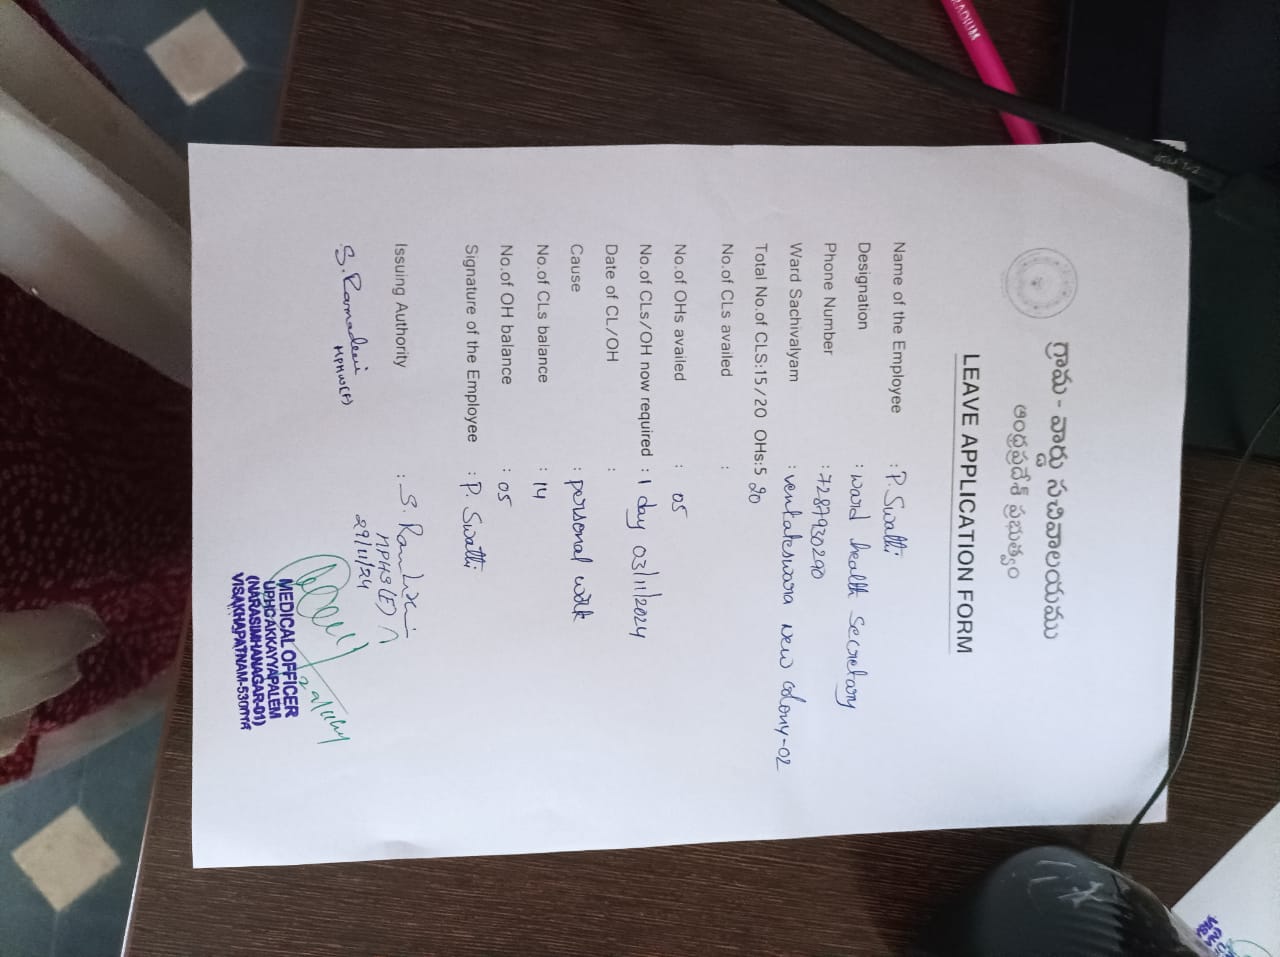 గ్రామ - వార్డు సచివాలయము
ఆంధ్రప్రదేశ్ ప్రభుత్వం
LEAVE APPLICATION FORM
Name of the Employee : P. Swathi
Designation : ward health secretary
Phone Number : 7287930290
Ward Sachivalyam : venkateswara new colony-02
Total No.of CLS:15/20 OHs:5 20
No.of CLs availed :
No.of OHs availed : 05
No.of CLs/OH now required : 1 day 03/11/2024
Date of CL/OH :
Cause : personal work
No.of CLs balance : 14
No.of OH balance : 05
Signature of the Employee : P. Swathi
Issuing Authority : S.
MPHS(E)
29/11/24
S. Ramadevi
MPHW(F)
29/11/24
MEDICAL OFFICER
UPHC AKKAYYAPALEM
(NARASIMHANAGAR-01)
VISAKHAPATNAM-
RADIUM